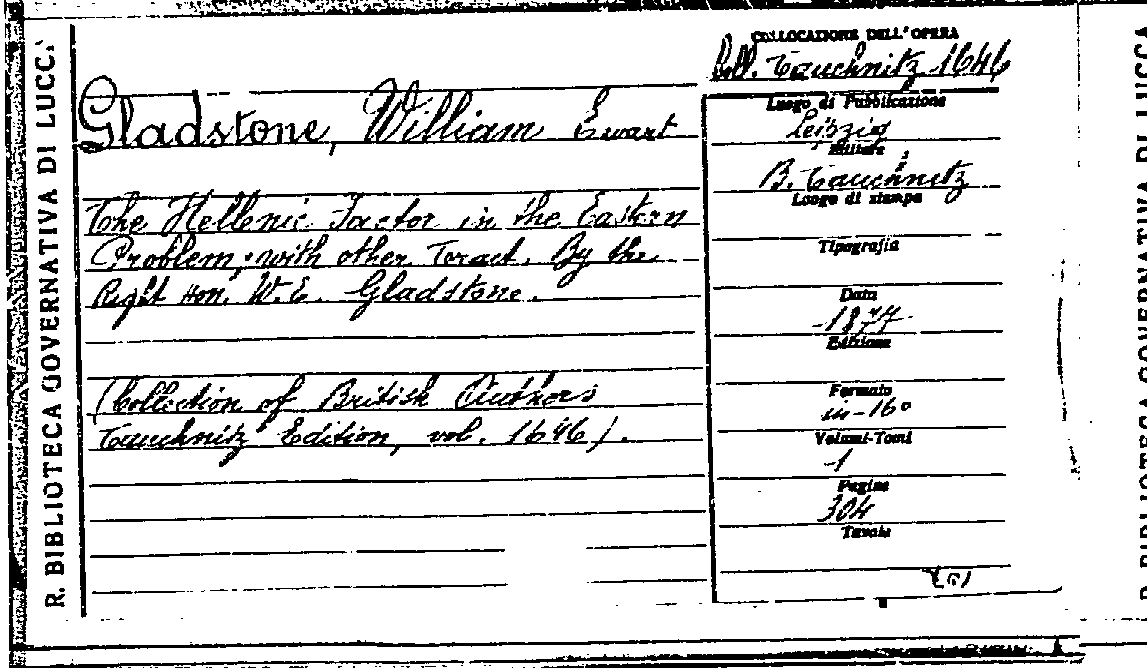 R. BIBLIOTECA GOVERNATIVA DI LUCCA
Gladstone, William Ewart
The Hellenic Factor in the Eastern
Problem, with other Toract. By the
Right Hon. W. E. Gladstone.
(Collection of British Authors
Tauchnitz Edition, vol. 1646).
COLLOCAZIONE DELL'OPERA
Coll. Tauchnitz 1646
Luogo di Pubblicazione
Leipzig
Editore
B. Tauchnitz
Luogo di stampa
Tipografia
Data
1877
Edizione
Formato
in-16°
Volumi-Tomi
1
Pagine
304
Tavole
R. BIBLIOTECA GOVERNATIVA DI LUCCA